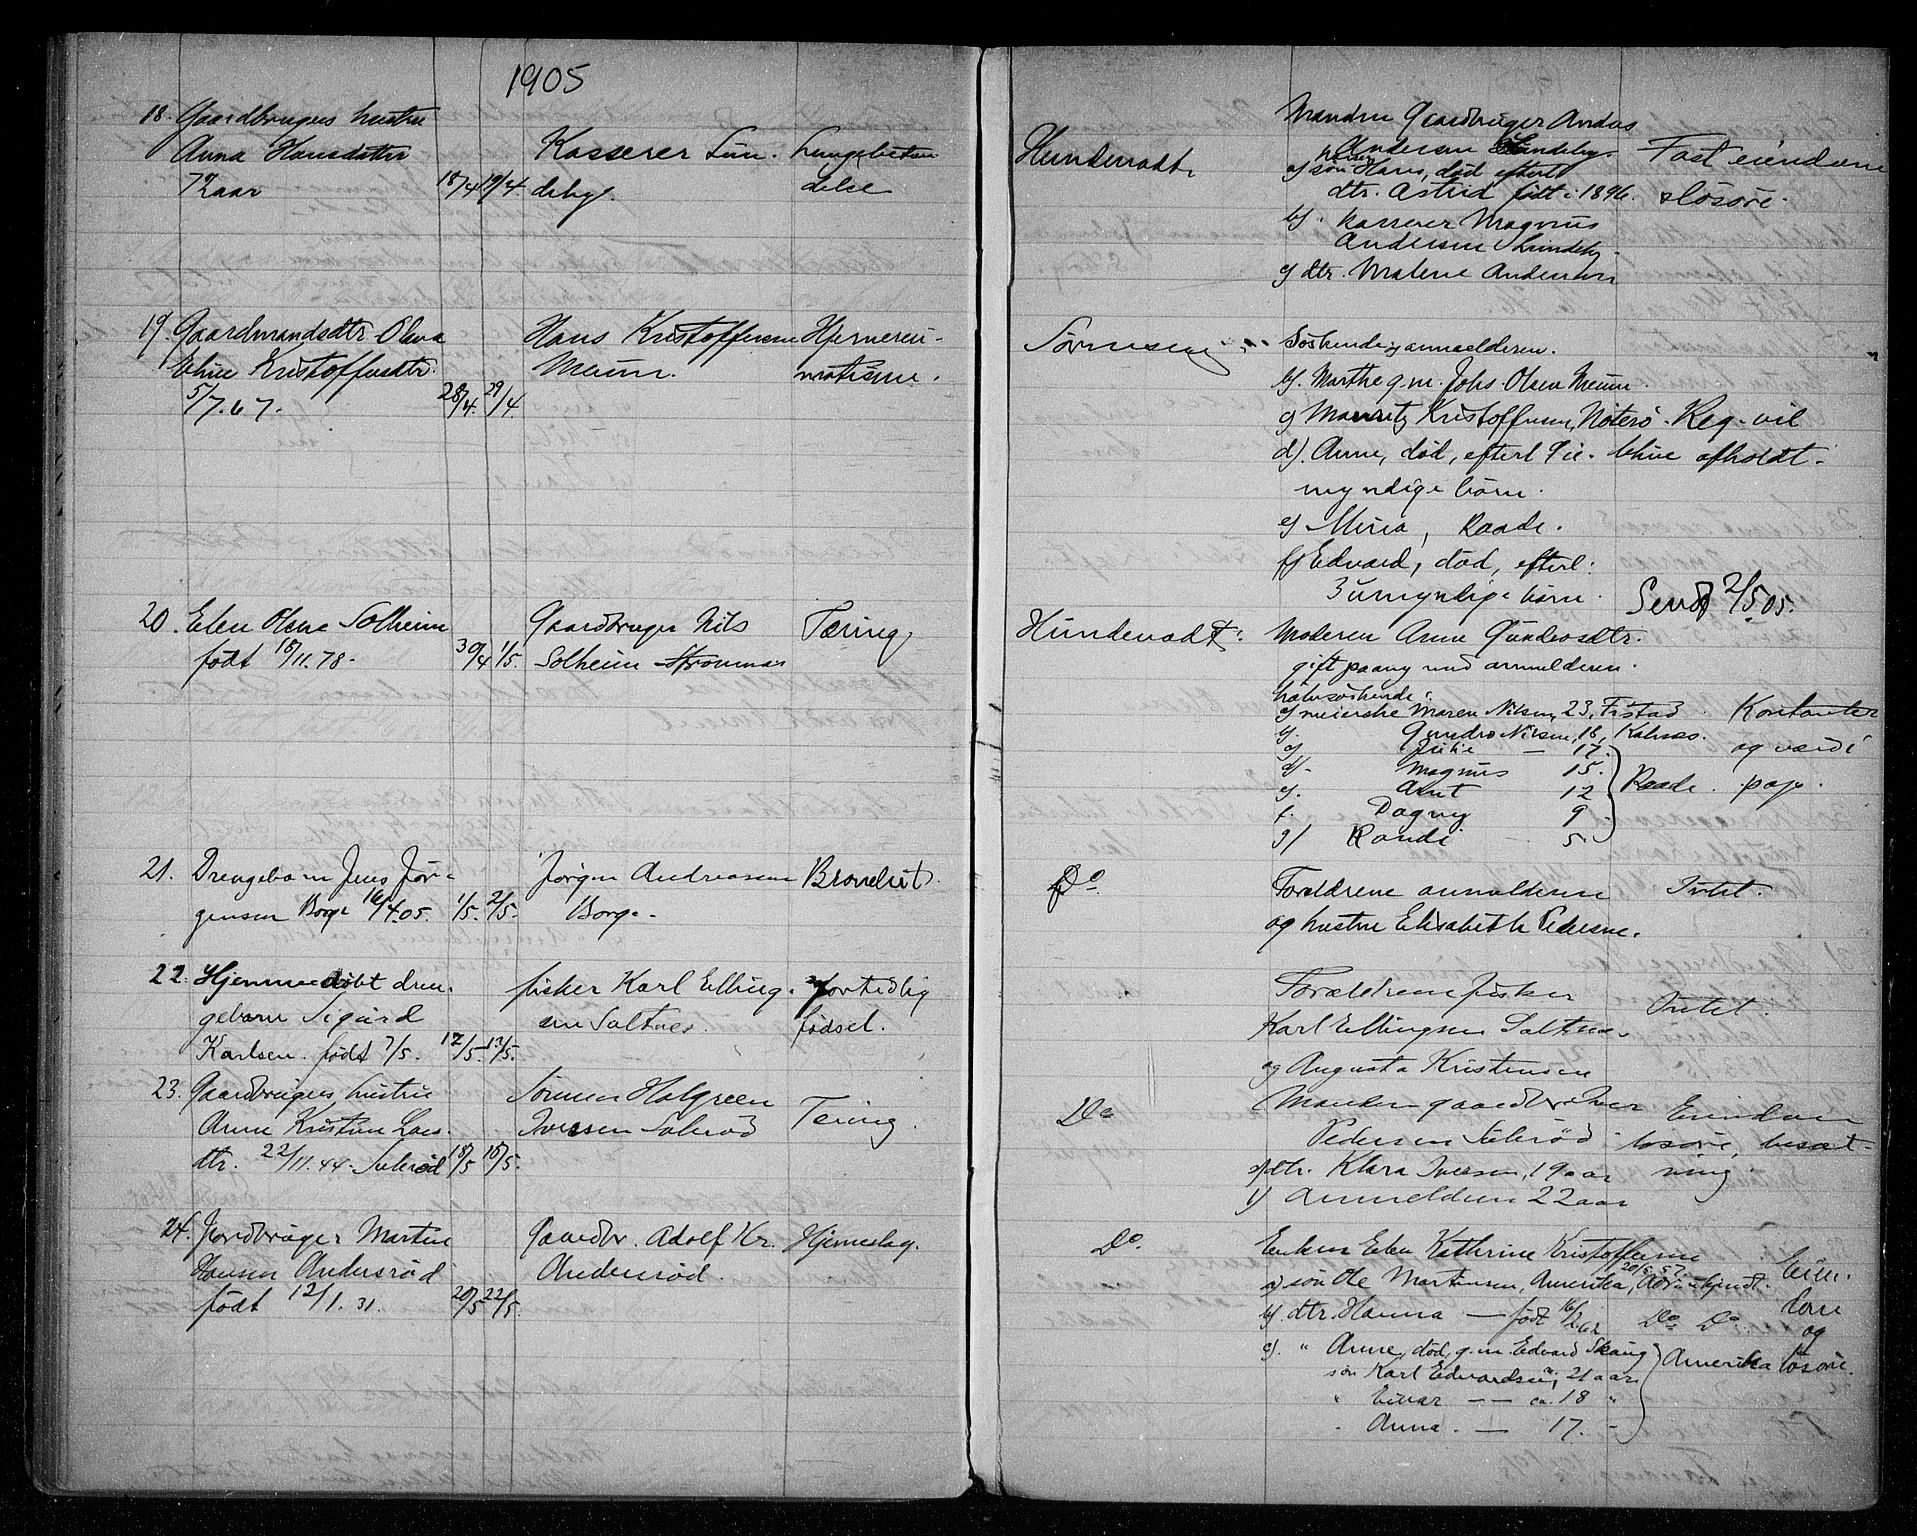 1905
18. Gaardbrugers hustru
Anna Hansdatter
72 aar 18/4 19/4.
Kasserer Lun-
deby.
Lungebeten-
delse
Hundevadt.
Manden Gaardbruger Andas
Andersen Lundeby.
a) søn Hans, død efterl
dtr. Astrid født i 1896.
b) kasserer Magnus
Andersen Lundeby.
c) dtr. Malene Andersen
Fast eiendom
& løsøre.
19. Gaardmandsdtr Olava
Eline Kristoffersdtr.
5/7.67. 28/4. 29/4.
Hans Kristoffersen
Meum.
Hjernereu-
matisme.
Søskende: a) anmelderen.
b). Marthe g.m. Johs. Olsen Meum.
c) Mauritz Kristoffersen, Nøterø.
d). Anne, død, efterl 9 u-
myndige børn.
e) Mina, Raade.
f) Edvard, død, efterl.
3 umyndige børn.
Reg. vil
blive afholdt.
Sendt 2/5 05.
20. Elen Olsen Solheim
født 18/11.78. 30/4 1/5.
Gaardbruger Nils
Solheim Strømnæs
Tæring
Hundevadt.
Moderen Anne Gundersdtr.
gift paany med anmelderen.
halvsøskende:
a) meierske Maren Nilsen, 23, Fistad
b). Gundro Nilsen, 18, Kalnes.
c) Julie — 17.
d) Magnus 15.
e). Arnt 12
f. Dagny 9
g) Randi 5.
Raade.
Kontanter
og værdi
pap.
21. Drengebarn Jens Jør-
gensen Borge 16/4.05. 1/5. 2/5.
Jørgen Andreassen
Borge.
Bronchit.
Do.
Forældrene anmelderen
og hustru Elisabeth Pedersen.
Intet.
22. Hjemmedøbt dren-
gebarn Sigurd
Karlsen. født 7/5. 12/5. 12/5.
fisker Karl Elling-
sen Saltnes.
for tidlig
fødsel.
Forældrene fisker
Karl Ellingsen Saltnes.
og Augusta Kristensen
Intet.
23. Gaardbrugers hustru
Anne Kristine Lars-
dtr. 22/11.44. Sulerød 18/5 18/5.
Sønnen Holgreen
Iversen Sulerød
Tæring.
Do
Manden gaardbr. Iver
Pedersen Sulerød
a) dtr. Klara Iversen, 19 aar
b) Anmelderen 22 aar
Eiendom
løsøre, besæt-
ning
24. Jordbruger Martin
Hansen Andersrød
født 12/1.31. 20/5 22/5.
Gaardbr. Adolf Kr.
Andersrød.
Hjerneslag.
Do.
Enken Elen Kathrine Kristoffersen
a) søn Ole Martinsen, Amerika, 20/5.57. Adr. ubekjendt.
b) dtr. Hanna — født 16/2.62 Do Do
c). " Anne, død, g.m. Edvard Skaug
søn Karl Edvardsen, 21 aar
" Einar — — ca. 18 "
" Anna. — 17. –
Amerika
Eien-
dom
og
løsøre.